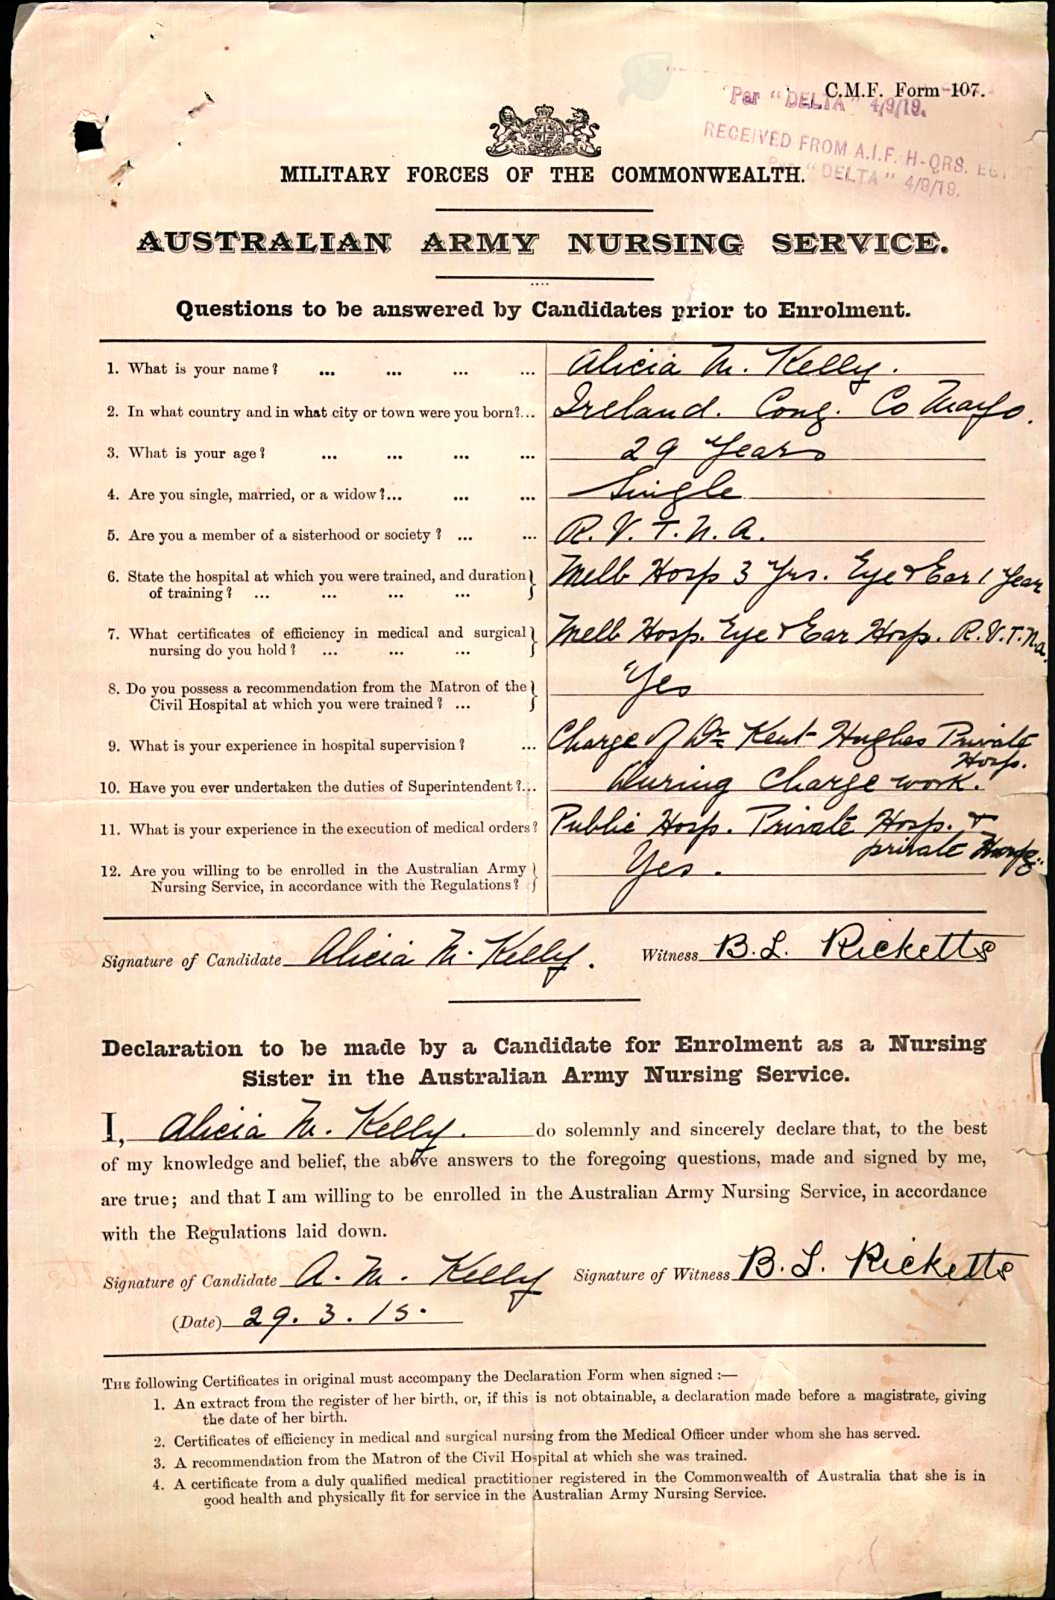 C.M.F. Form 107.
Per "DELTA" 4/9/19.
RECEIVED FROM A.I.F. H-QRS.
Per "DELTA" 4/9/19.
MILITARY FORCES OF THE COMMONWEALTH.
AUSTRALIAN ARMY NURSING SERVICE.
Questions to be answered by Candidates prior to Enrolment.
1. What is your name? ... ... ... ... Alicia M. Kelly.
2. In what country and in what city or town were you born?... Ireland. Cong. Co Mayo.
3. What is your age? ... ... ... ... 29 Years
4. Are you single, married, or a widow?... ... ... Single
5. Are you a member of a sisterhood or society? ... ... R.V.T.N.A.
6. State the hospital at which you were trained, and duration Melb Hosp 3 Yrs. Eye & Ear 1 Year
of training? ... ... ... ...
7. What certificates of efficiency in medical and surgical Melb Hosp. Eye & Ear Hosp. R.V.T.N.a.
nursing do you hold? ... ... ...
8. Do you possess a recommendation from the Matron of the Yes
Civil Hospital at which you were trained? ...
9. What is your experience in hospital supervision? ... Charge of Dr Kent Hughes Private
Hosp.
10. Have you ever undertaken the duties of Superintendent?... During Charge work.
11. What is your experience in the execution of medical orders? Public Hosp. Private Hosp. &
private
12. Are you willing to be enrolled in the Australian Army Yes.
Nursing Service, in accordance with the Regulations?
Signature of Candidate Alicia M. Kelly. Witness B. L. Ricketts
Declaration to be made by a Candidate for Enrolment as a Nursing
Sister in the Australian Army Nursing Service.
I, Alicia M. Kelly. do solemnly and sincerely declare that, to the best
of my knowledge and belief, the above answers to the foregoing questions, made and signed by me,
are true; and that I am willing to be enrolled in the Australian Army Nursing Service, in accordance
with the Regulations laid down.
Signature of Candidate A. M. Kelly Signature of Witness B. L. Ricketts
(Date) 29.3.15.
THE following Certificates in original must accompany the Declaration Form when signed :—
1. An extract from the register of her birth, or, if this is not obtainable, a declaration made before a magistrate, giving
the date of her birth.
2. Certificates of efficiency in medical and surgical nursing from the Medical Officer under whom she has served.
3. A recommendation from the Matron of the Civil Hospital at which she was trained.
4. A certificate from a duly qualified medical practitioner registered in the Commonwealth of Australia that she is in
good health and physically fit for service in the Australian Army Nursing Service.